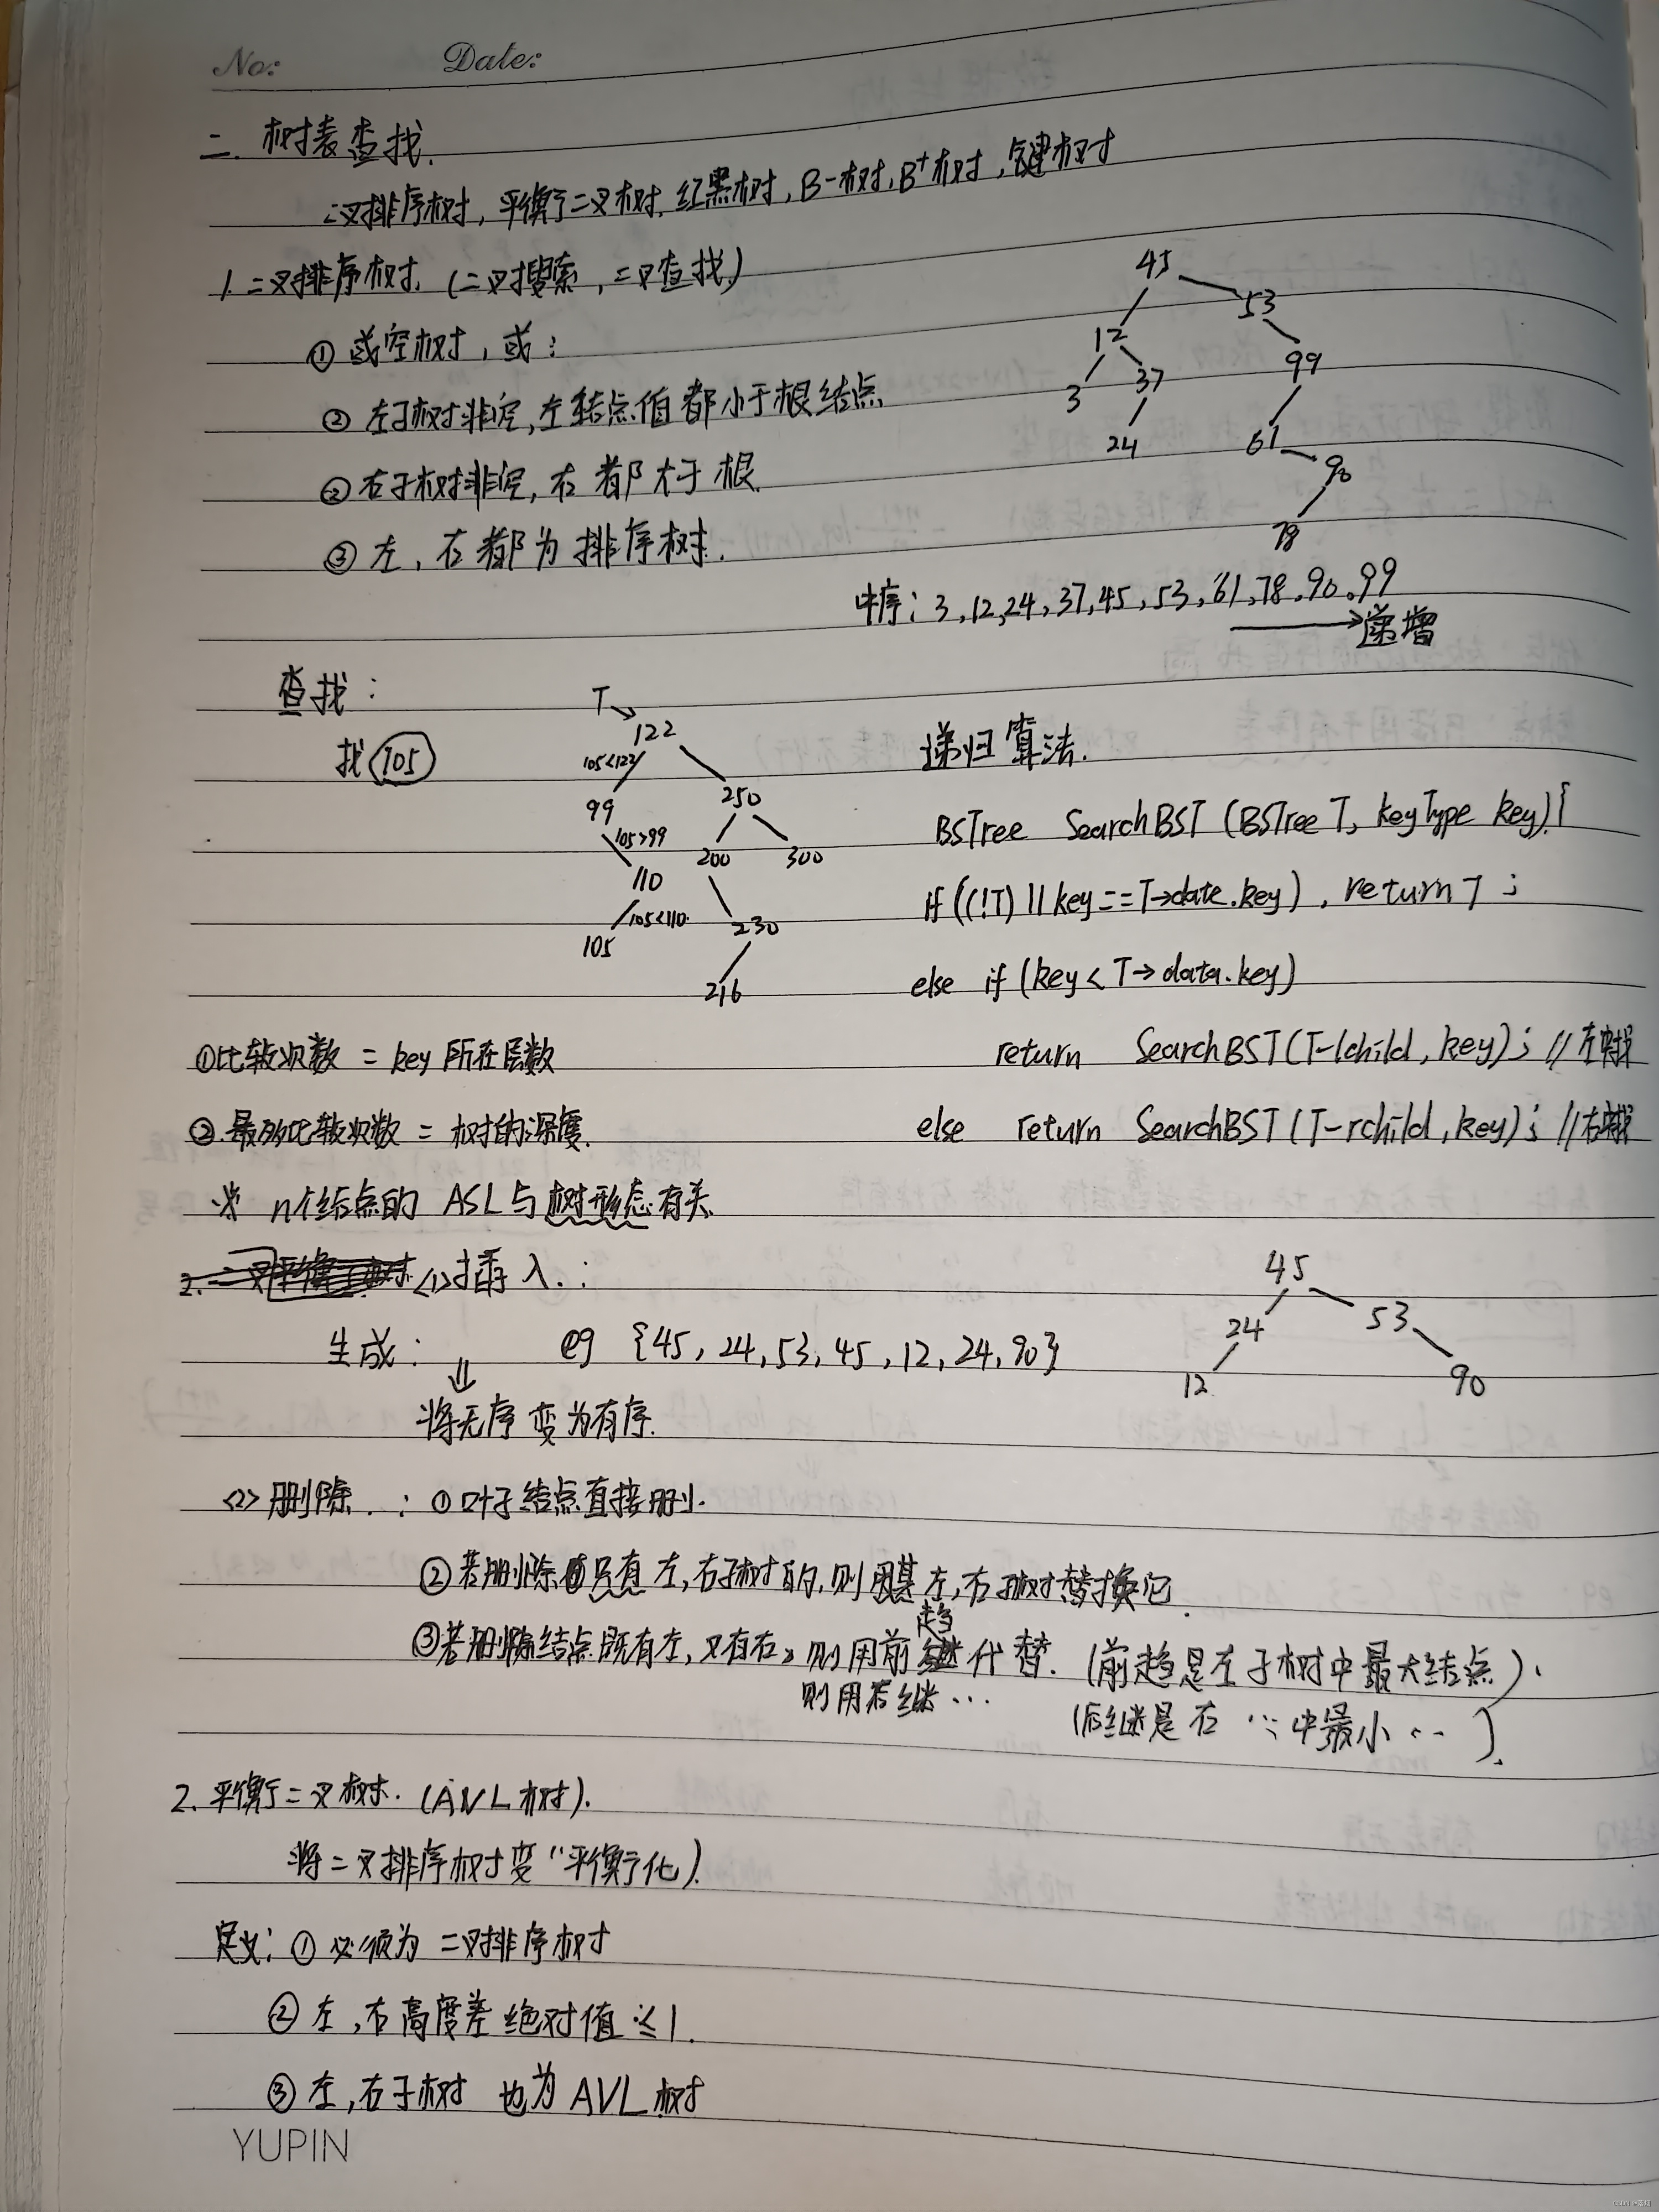 No: Date:
二. 树表查找.
二叉排序树, 平衡二叉树, 红黑树, B-树, B⁺树, 键树
1. 二叉排序树. (二叉搜索, 二叉查找)
① 或空树, 或:
② 左子树非空, 左结点值都小于根结点
② 右子树非空, 右都大于根.
③ 左, 右都为排序树.
45
12 53
3 37 99
24 61
90
78
中序: 3, 12, 24, 37, 45, 53, 61, 78, 90, 99
递增
查找:
找 105
T
122
105<122
99 250
105>99
110 200 300
105<110
105 230
216
递归算法.
BSTree SearchBST (BSTree T, keyType key){
if ((!T) || key==T→date.key), return T;
else if (key < T→data.key)
return SearchBST(T-lchild, key); //左找
else return SearchBST(T-rchild, key); //右找
①比较次数 = key 所在层数
②.最多比较次数 = 树的深度.
※ n个结点的 ASL与树形态有关.
2. 二叉平衡树 <1>插入.:
生成: eg {45, 24, 53, 45, 12, 24, 90}
⇓
将无序变为有序.
45
24 53
12 90
<2>删除.: ①叶子结点直接删.
②若删除只有左,右子树的,则用其左,右子树替换它.
③若删除结点既有左,又有右,则用前趋代替. (前趋是左子树中最大结点).
则用后继… (后继是右…中最小…).
2. 平衡二叉树. (AVL树).
将二叉排序树变“平衡化).
定义: ① 必须为 二叉排序树
② 左,右高度差绝对值≤1.
③ 左,右子树 也为 AVL树
YUPIN